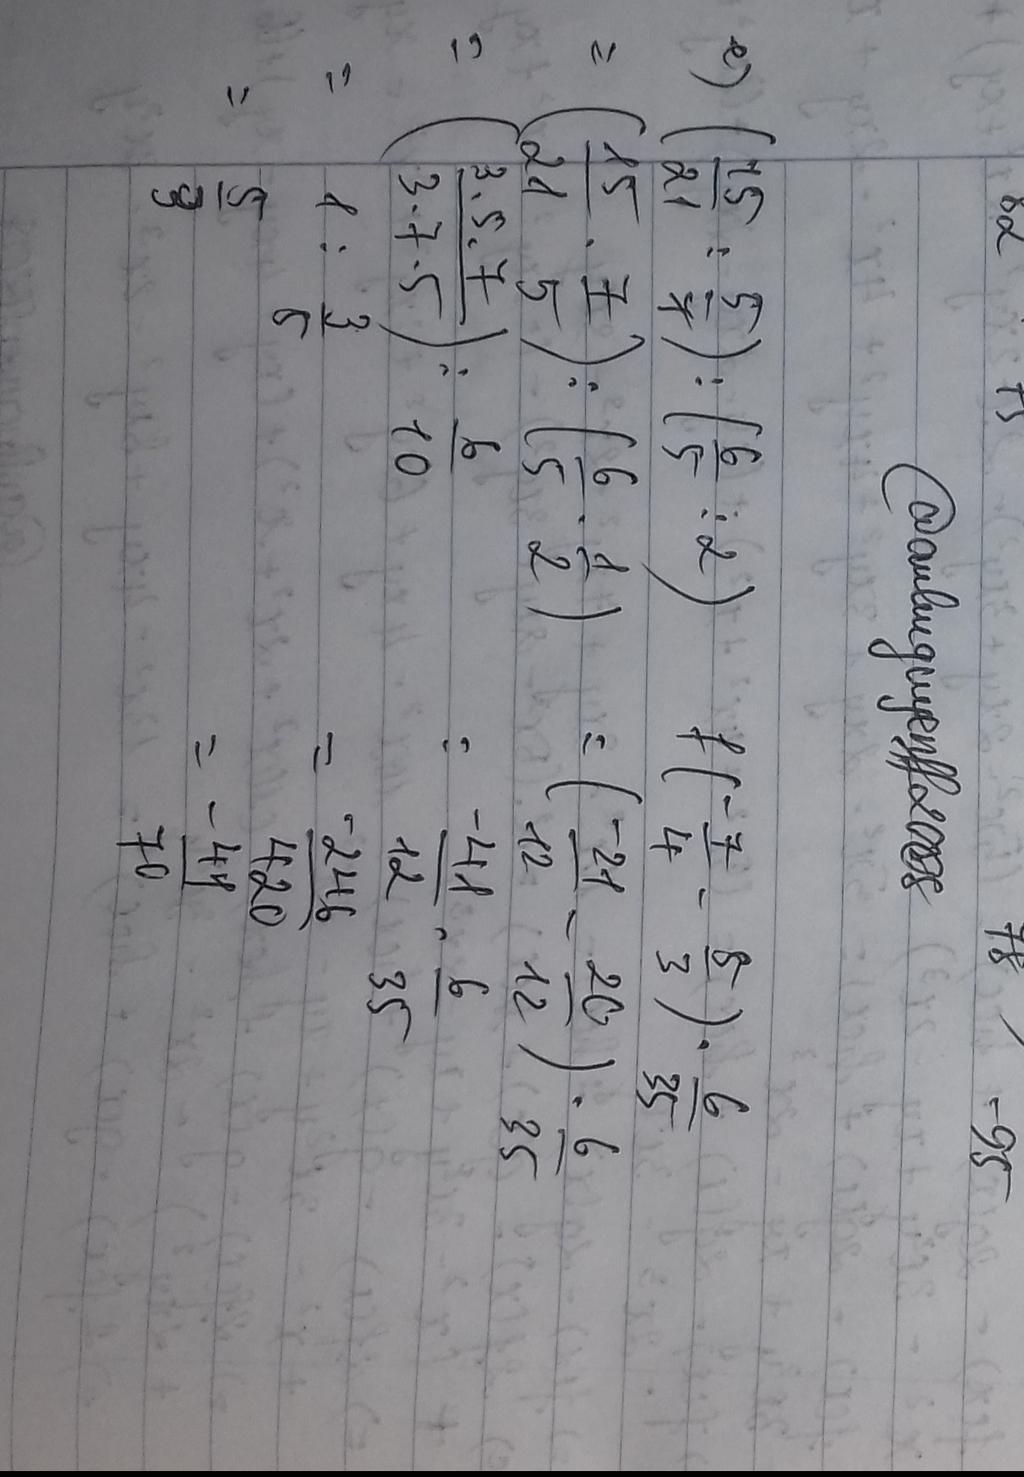 82 75 78 -95
@danlinguyenff2008
e) (15/21 : 5/7) : (6/5 : 2)
= (15/21 . 7/5) : (6/5 . 1/2)
= (3.5.7/3.7.5) : 6/10
= 1 : 3/5
= 5/3
f (-7/4 - 5/3) . 6/35
= (-21/12 - 20/12) . 6/35
= -41/12 . 6/35
= -246/420
= -41/70